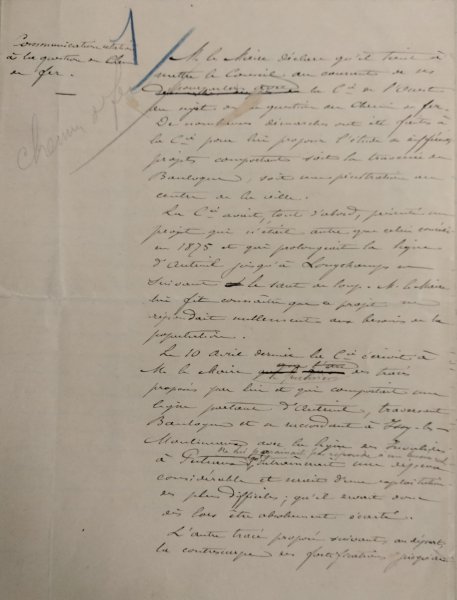 Communication relative
à la question du Chemin
de fer.
chemin de fer
M. le Maire déclare qu'il tient à
mettre le Conseil au courant de ses
pourparlers avec la Cie de l'Ouest
au sujet de la question du Chemin de fer.
De nombreuses démarches ont été faites à
la Cie pour lui proposer l'étude de différents
projets comportant soit la traversée de
Boulogne, soit une pénétration au
centre de la ville.
La Cie avait, tout d'abord, présenté un
projet qui n'était autre que celui
en 1875 et qui prolongeait la ligne
d'Auteuil jusqu'à Longchamps en
suivant le saut de loup. M. le Maire
lui fit connaître que ce projet ne
répondait nullement aux besoins de la
population.
Le 10 Avril dernier la Cie écrivit à
M. le Maire que l'un des tracés
proposés par lui et qui comportait une
ligne partant d'Auteuil, traversant
Boulogne et se raccordant à Issy-les-
Moulineaux avec la ligne des Invalides
à Puteaux entraînement une dépense
considérable et serait d'une exploitation
des plus difficiles ; qu'il devait donc
dès lors être absolument écarté.
L'autre tracé proposé suivant, au départ,
la contrescarpe des fortifications jusqu'au